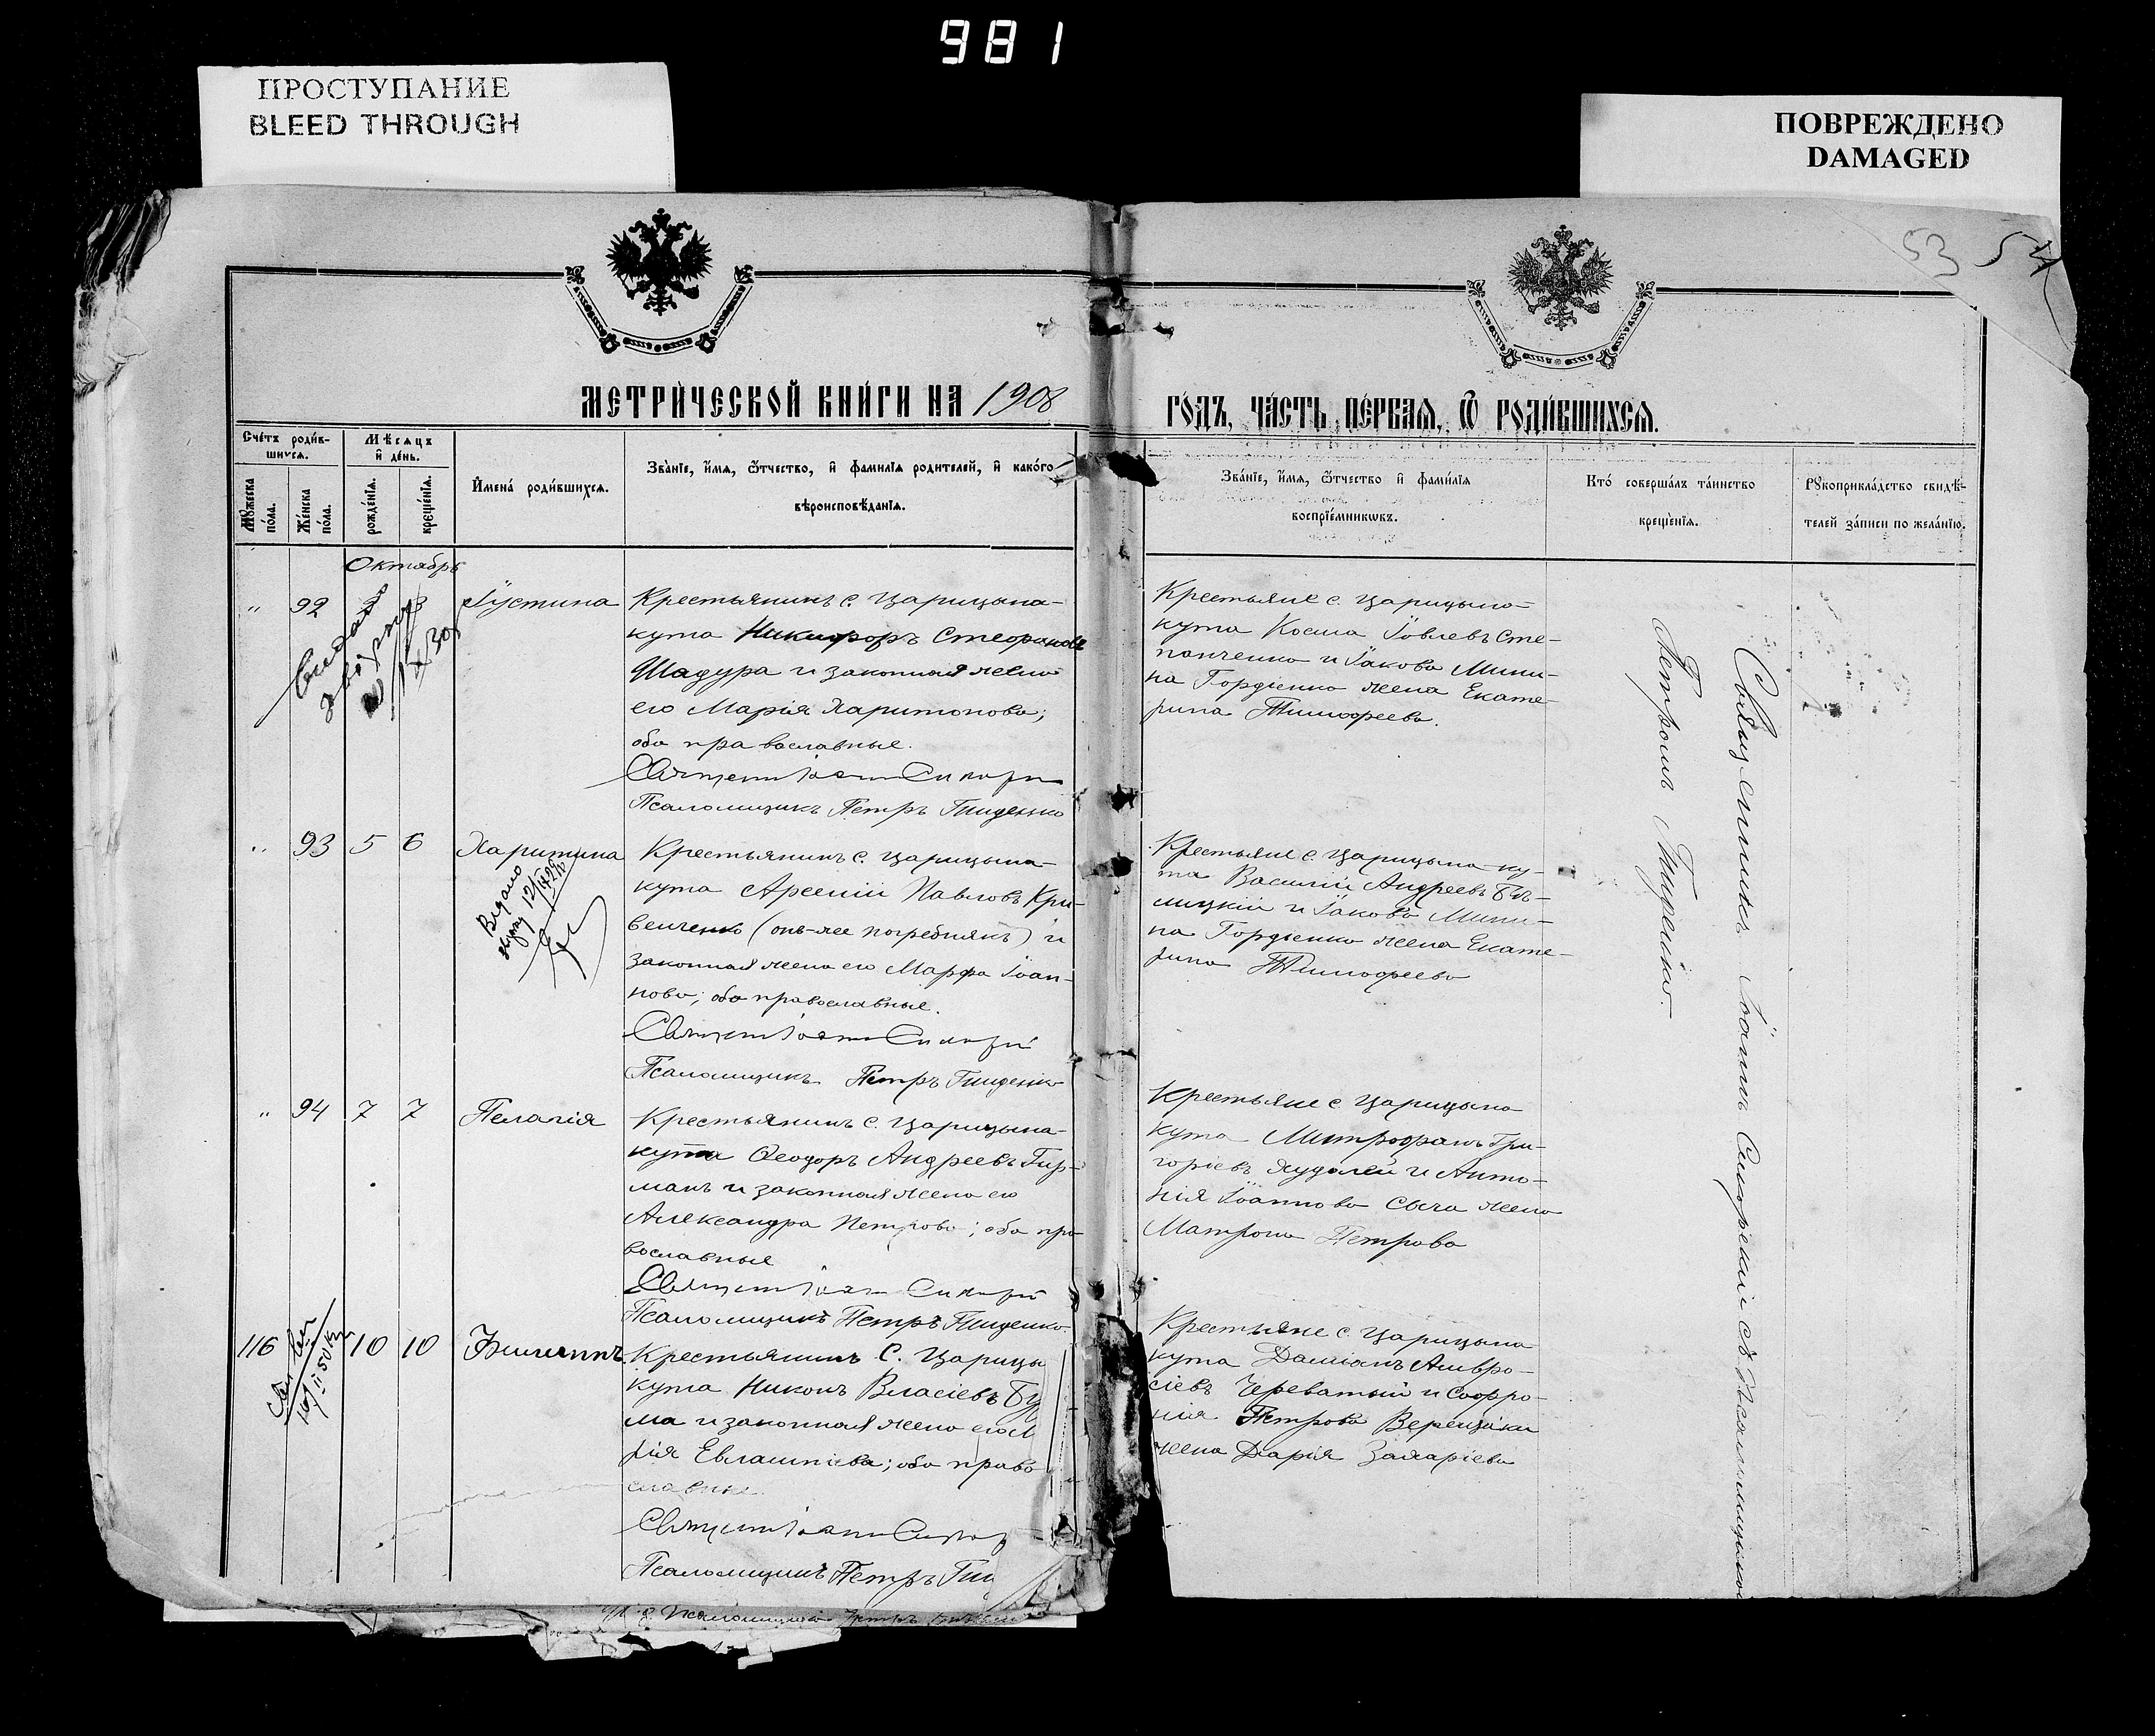 981
ПРОСТУПАНИЕ
BLEED THROUGH
ПОВРЕЖДЕНО
DAMAGED
53 54
МЕТРИ́ЧЕСКОЙ КНИ́ГИ НА 1908
ГО́ДЪ, ЧА́СТЬ ПЕ́РВАѦ, Ѿ РОДИ́ВШИХСѦ.
Сче́тъ роди́в-
шихся.
Мѣ́сяцъ
и҆ де́нь.
Мꙋ́жеска по́ла.
Же́нска по́ла.
рожде́нїѧ.
креще́нїѧ.
И҆мена́ роди́вшихсѧ.
Зва́нїе, и҆́мѧ, ѻ҆́тчество, и҆ фами́лїѧ роди́телей, и҆ како́гѡ
вѣроисповѣ́данїѧ.
Зва́нїе, и҆́мѧ, ѻ҆́тчество и҆ фами́лїѧ
воспрїе́мникѡвъ.
Кто́ соверша́лъ та́инство
креще́нїѧ.
Рꙋкоприкла́дство свидѣ́-
телей за́писи по жела́нїю.
Октябрь
" 92 2 3 Іустина
Крестьянинъ с. Царицына-
кута Никифоръ Стефановъ
Шадура и законная жена
его Марія Харитонова;
оба православные.
Священ. Іоаннъ
Псаломщикъ Петръ Гниденко
Крестьяне с. Царицыно-
кута Косма Іовлевъ Сте-
панченко и Іакова Мини-
на Гордіенко жена Екате-
рина Тимофеева.
" 93 5 6 Харитина
Выдано
12/
Крестьянинъ с. Царицына-
кута Арсеній Павловъ Кри-
венченко (онъ-же Погребнякъ) и
законная жена его Марфа Іоан-
нова; оба православные.
Священ. Іоаннъ
Псаломщикъ Петръ Гниденко
Крестьяне с. Царицына-ку-
та Василій Андреевъ Бѣ-
лицкій и Іакова Мини-
на Гордіенко жена Екате-
рина Тимофеева
" 94 7 7 Пелагія
Крестьянинъ с. Царицына-
кута Ѳеодоръ Андреевъ Гир-
манъ и законная жена его
Александра Петрова; оба пра-
вославные
Священ. Іоаннъ
Псаломщикъ Петръ Гниденко.
Крестьяне с. Царицына
кута Митрофанъ Гри-
горіевъ Худолей и Анто-
нія Іоаннова Сыча жена
Матрона Петрова
116 10 10 Филиппъ.
Крестьянинъ с. Царицы
кута Никонъ Власіевъ Бу
ма и законная жена его М
рія Евлампіева; оба право
славные.
Священ. Іоаннъ
Псаломщикъ Петръ Гни
Крестьяне с. Царицына
кута Даміанъ Амвро-
сіевъ Череватый и Софро-
нія Петрова Верещаки
жена Дарія Захаріева
Священникъ Іоаннъ съ Псаломщикомъ
Петромъ Гниденко.